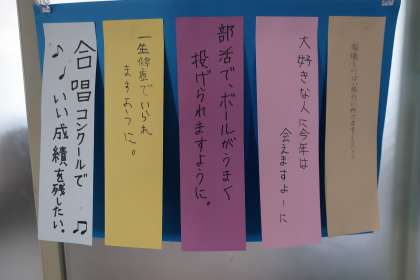 大好きな人に今年は
会えますよーに
部活で、ボールがうまく
投げられますように。
一生健康でいられ
ますように。
合唱コンクールで♫
♪♪いい成績を残したい。